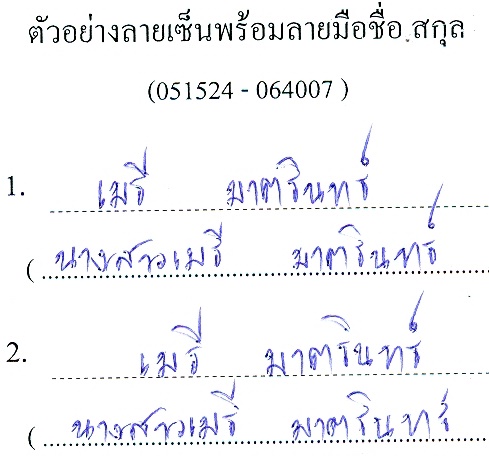 ตัวอย่างลายเซ็นพร้อมลายมือชื่อ.สกุล
(051524 - 064007 )
1. เมธี มาตรินทร์
( นางสาวเมธี มาตรินทร์
2. เมธี มาตรินทร์
( นางสาวเมธี มาตรินทร์